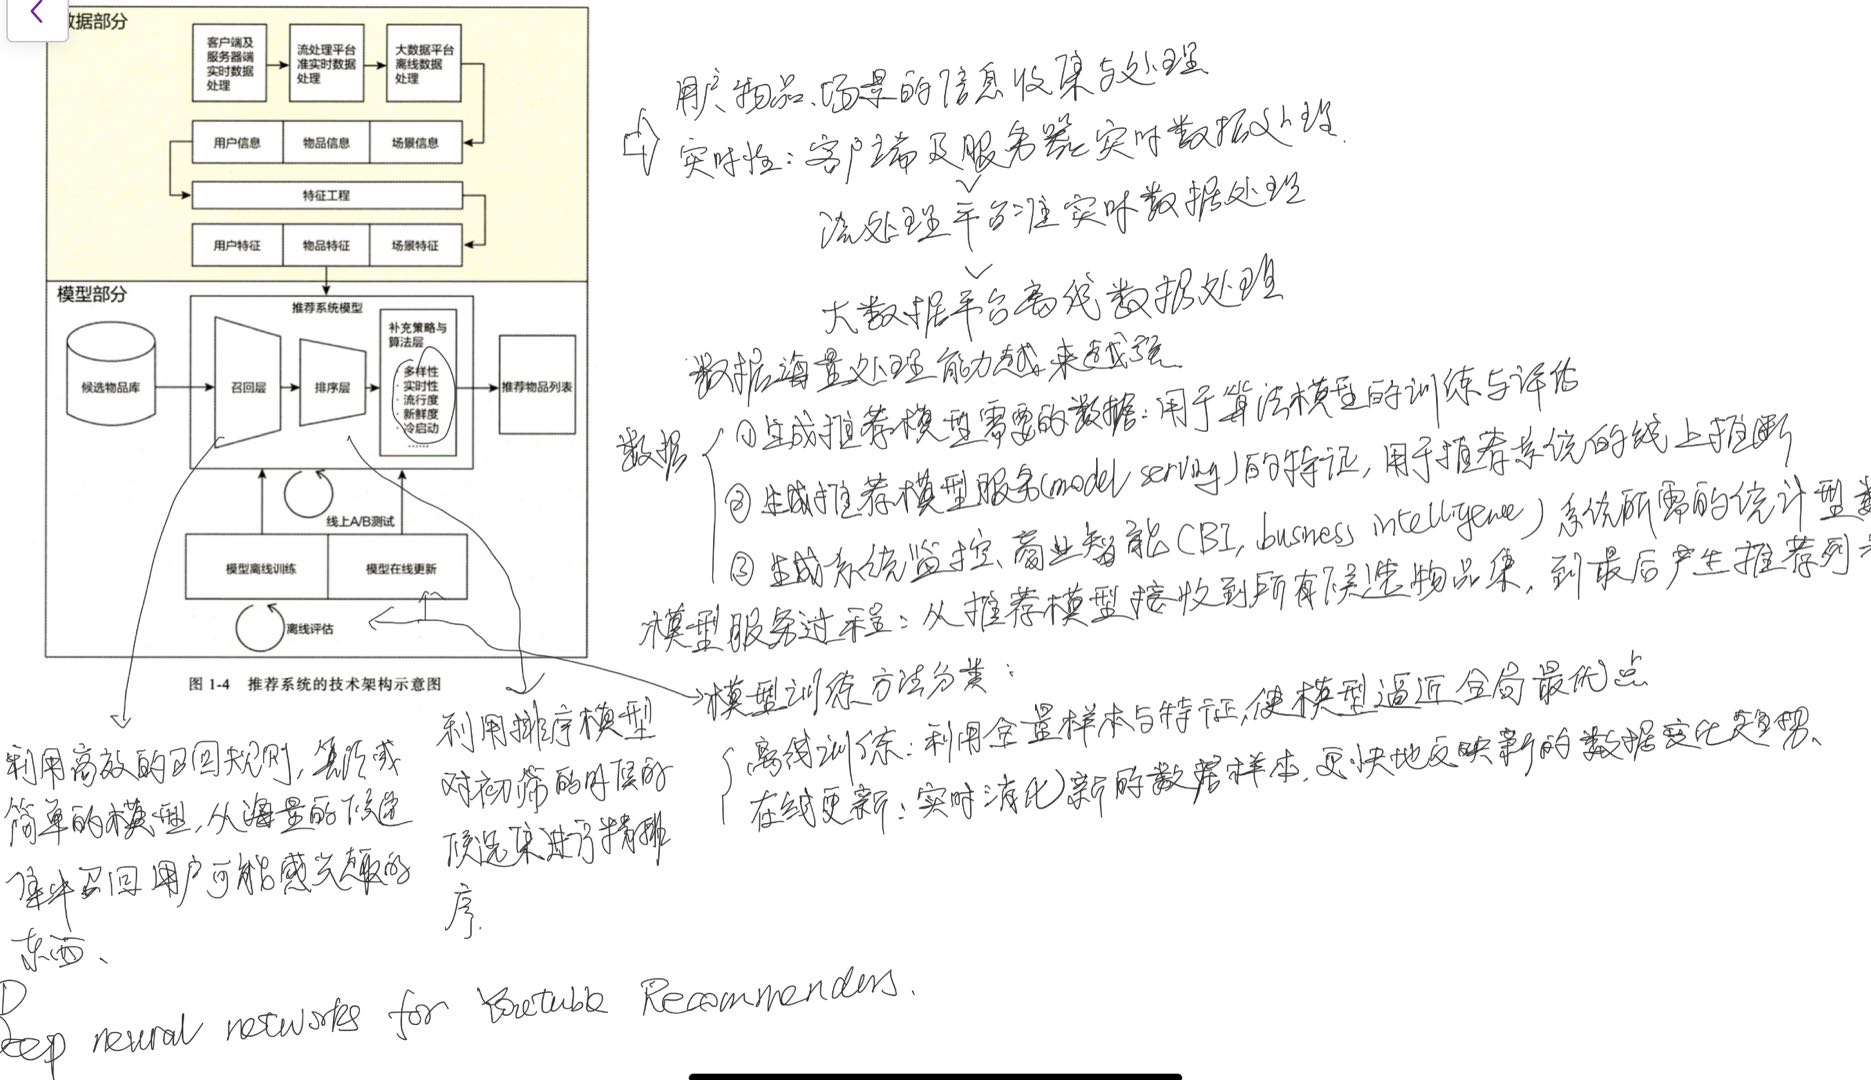 数据部分
客户端及
服务器端
实时数据
处理
流处理平台
准实时数据
处理
大数据平台
离线数据
处理
用户信息
物品信息
场景信息
特征工程
用户特征
物品特征
场景特征
模型部分
推荐系统模型
候选物品库
召回层
排序层
补充策略与
算法层
· 多样性
· 实时性
· 流行度
· 新鲜度
· 冷启动
......
推荐物品列表
线上A/B测试
模型离线训练
模型在线更新
离线评估
图 1-4 推荐系统的技术架构示意图
用户、物品、场景的信息收集与处理
实时性：客户端及服务器实时数据处理.
流处理平台准实时数据处理
大数据平台离线数据处理
数据海量处理能力越来越强
数据
①生成推荐模型需要的数据：用于算法模型的训练与评估
②生成推荐模型服务(model serving)的特征，用于推荐系统的线上推断
③生成系统监控、商业智能(BI, business intelligence)系统所需的统计型
模型服务过程：从推荐模型接收到所有候选物品集，到最后产生推荐列
模型训练方法分类：
离线训练：利用全量样本与特征，使模型逼近全局最优点
在线更新：实时消化新的数据样本，更快地反映新的数据变化
利用高效的召回规则，算法或
简单的模型，从海量的候选
集中召回用户可能感兴趣的
东西、
利用排序模型
对初筛的候的
候选集进行精排
序.
Deep neural networks for Youtube Recommenders.